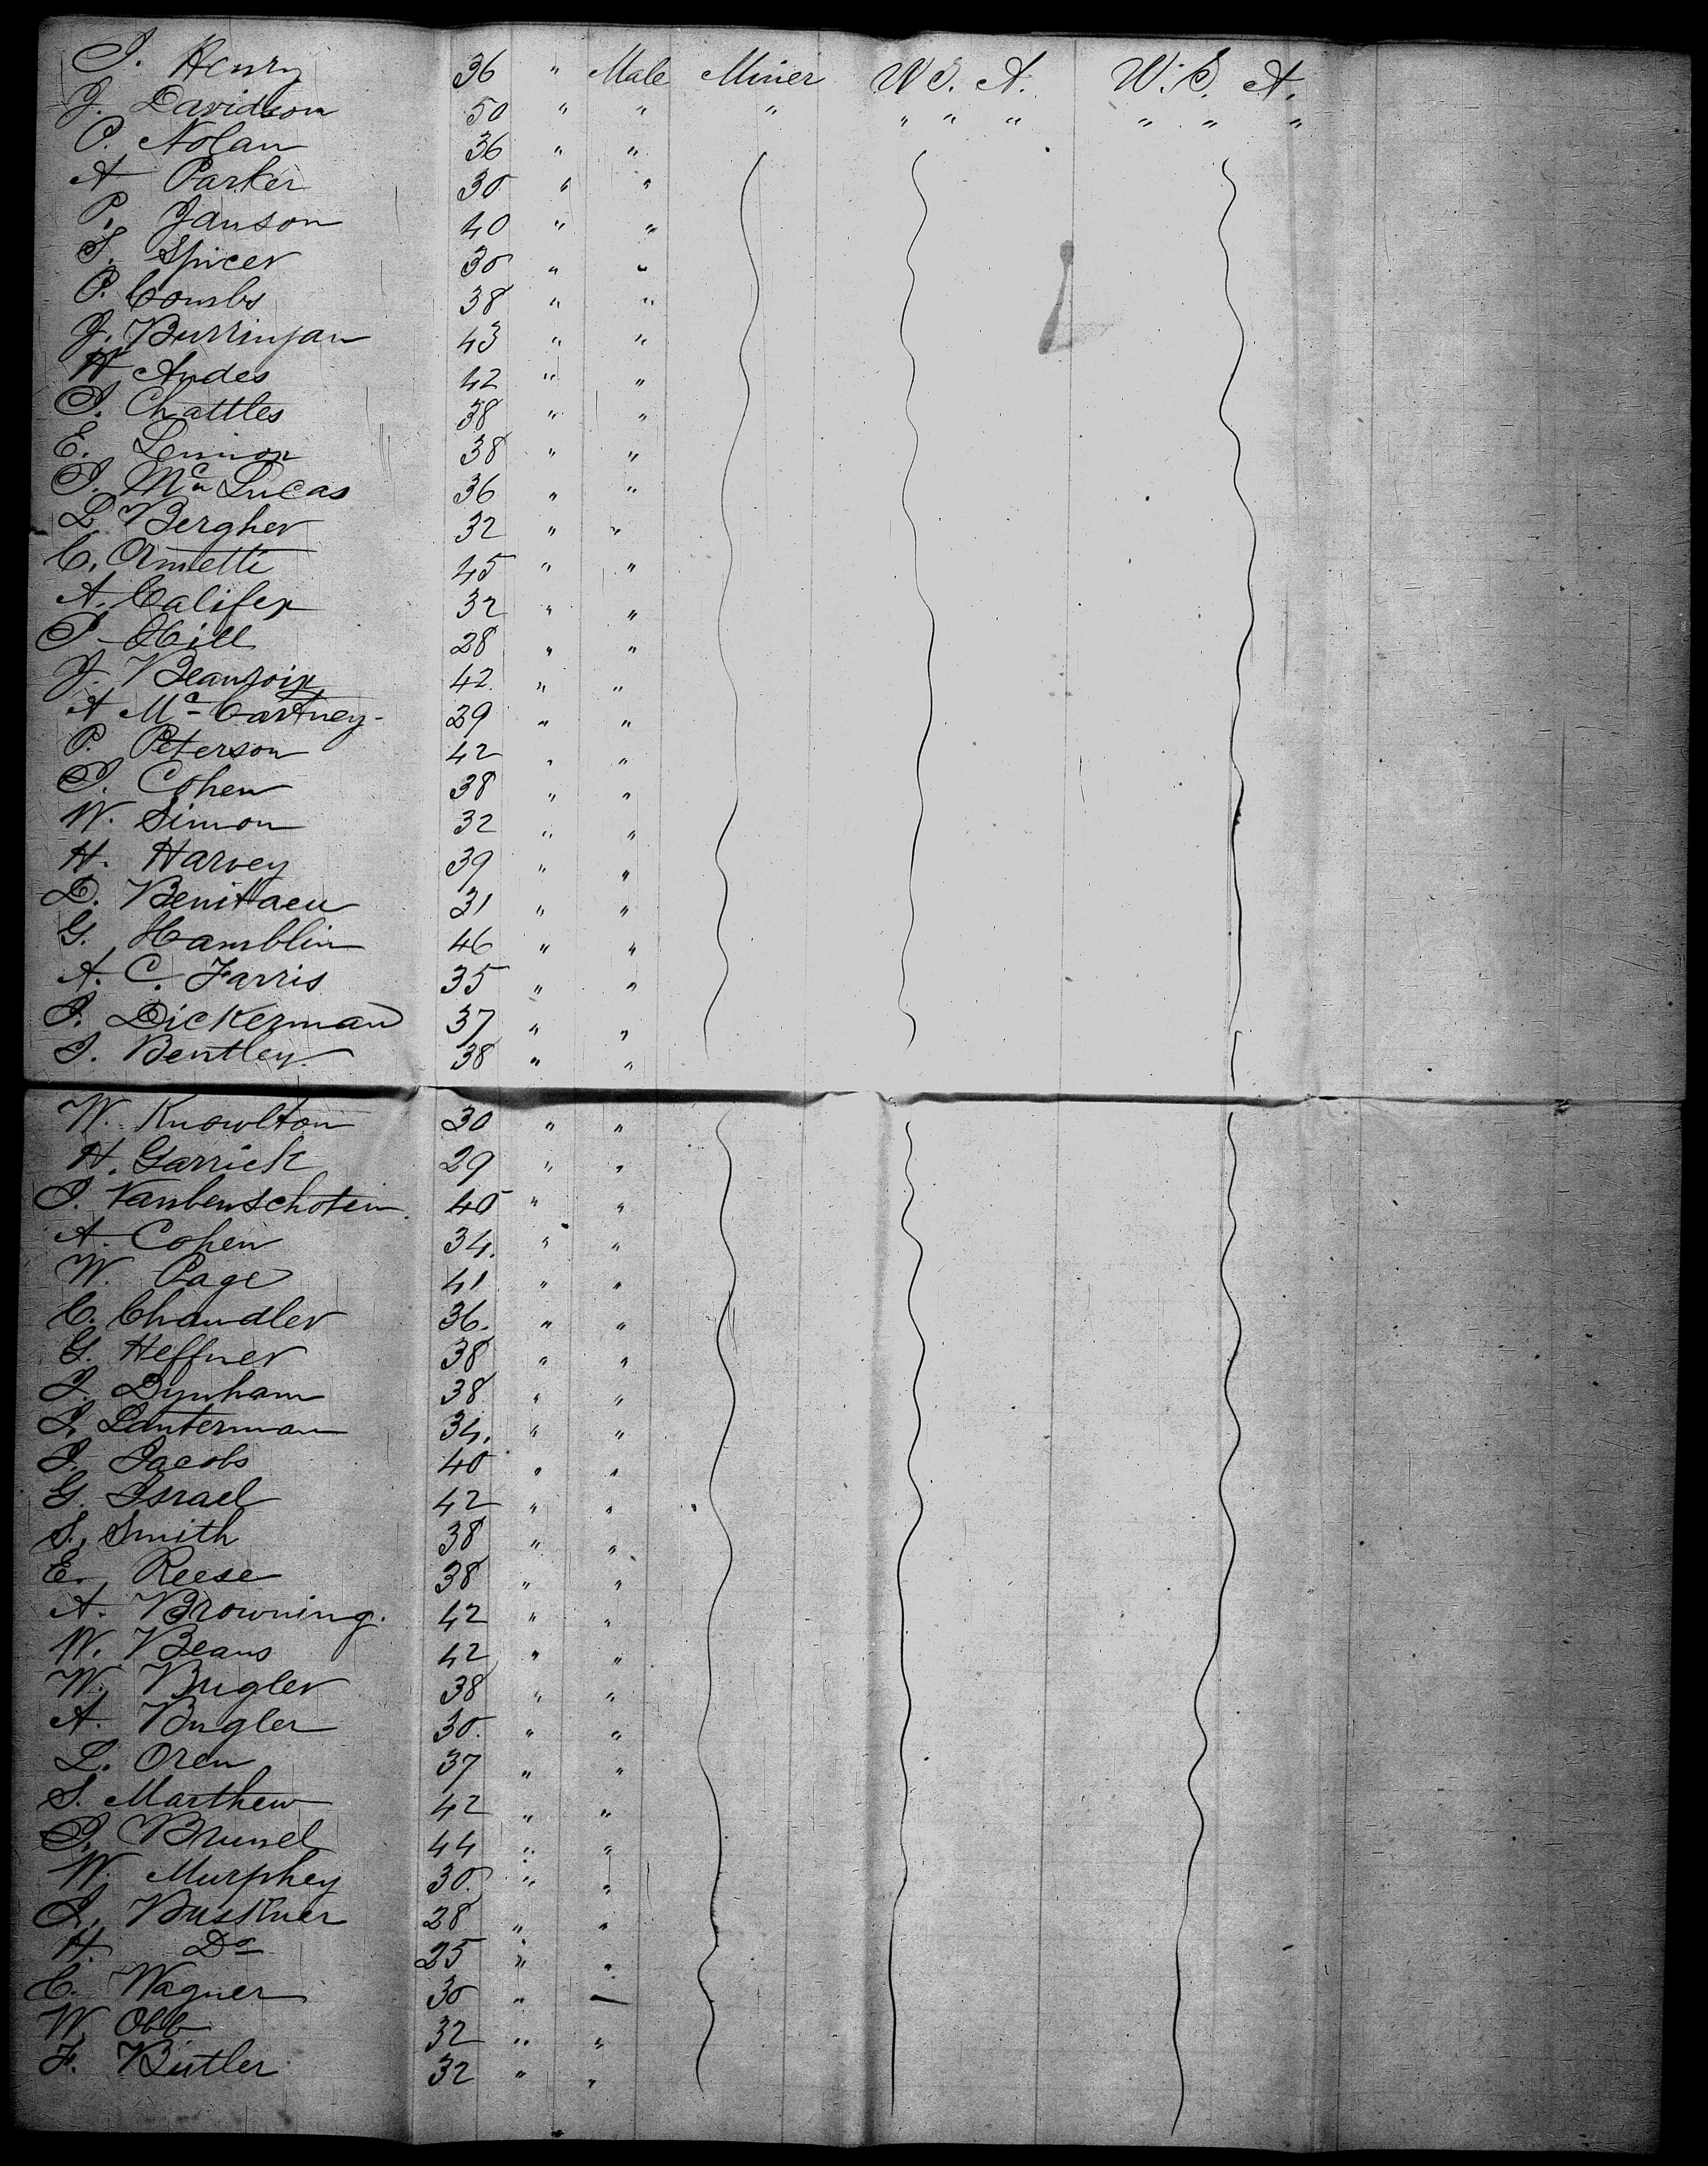 J. Henry 36 " Male Miner U S. A. U. S. A.
J. Davidson 50 " " " " " " " " "
P. Nolan 36 " "
A Parker 30 " "
P. Janson 40 " "
S. Spicer 30 " "
P. Combs 38 " "
J. Burrinjan 43 " "
H Andes 42 " "
J. Chattles 38 " "
E. Lennox 38 " "
J. Mc Lucas 36 " "
L Bergher 32 " "
C. Annetti 45 " "
A. Califex 32 " "
J. Hill 28 " "
J. 42. " "
A Mc Cartney 29 " "
P. Peterson 42 " "
J. Cohen 38 " "
W. Simon 32 " "
H. Harvey 39 " "
D. 31 " "
G. Hamblin 46 " "
A. C. Farris 35 " "
J. Dickerman 37 " "
J. Bentley. 38 " "
W. Knowlton 30 " "
H. Garrick 29 " "
J. Vanbenschotein. 40 " "
A. Cohen 34. " "
W. Page 41 " "
C. Chandler 36. " "
G. Heffner 38 " "
J. Dynham 38 " "
J. Lanterman 34. " "
J. Jacobs 40 " "
G. Israel 42 " "
S. Smith 38 " "
E. Reese 38 " "
A. Browning. 42 " "
W. Beans 42 " "
W. Bugler 38 " "
A. Bugler 30. " "
L. Oren 37 " "
S. Marthew 42 " "
J. Brunel 44 " "
W. Murphey 30. " "
J. Buskner 28 " "
H Do 25 " "
C. Wagner 30 " —
W. Obb 32 " "
F. Butler 32 " "